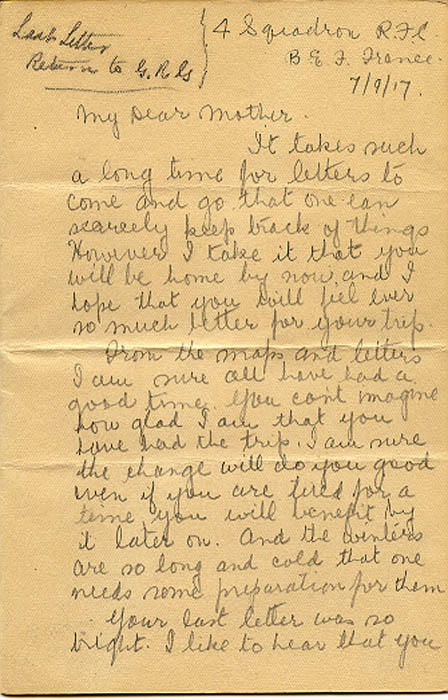 Last Letter
Return to G.R.G
4 Squadron R.F.C
B.E.F. France.
7/9/17.
My Dear Mother.
It takes such
a long time for letters to
come and go that one can
scarcely keep track of things
However I take it that you
will be home by now and I
hope that you will feel ever
so much better for your trip.
From the maps and letters
I am sure all have had a
good time. You cant imagine
how glad I am that you
have had the trip. I am sure
the change will do you good
even if you are tired for a
time you will benefit by
it later on. And the winters
are so long and cold that one
needs some preparation for them
Your last letter was so
bright. I like to hear that you